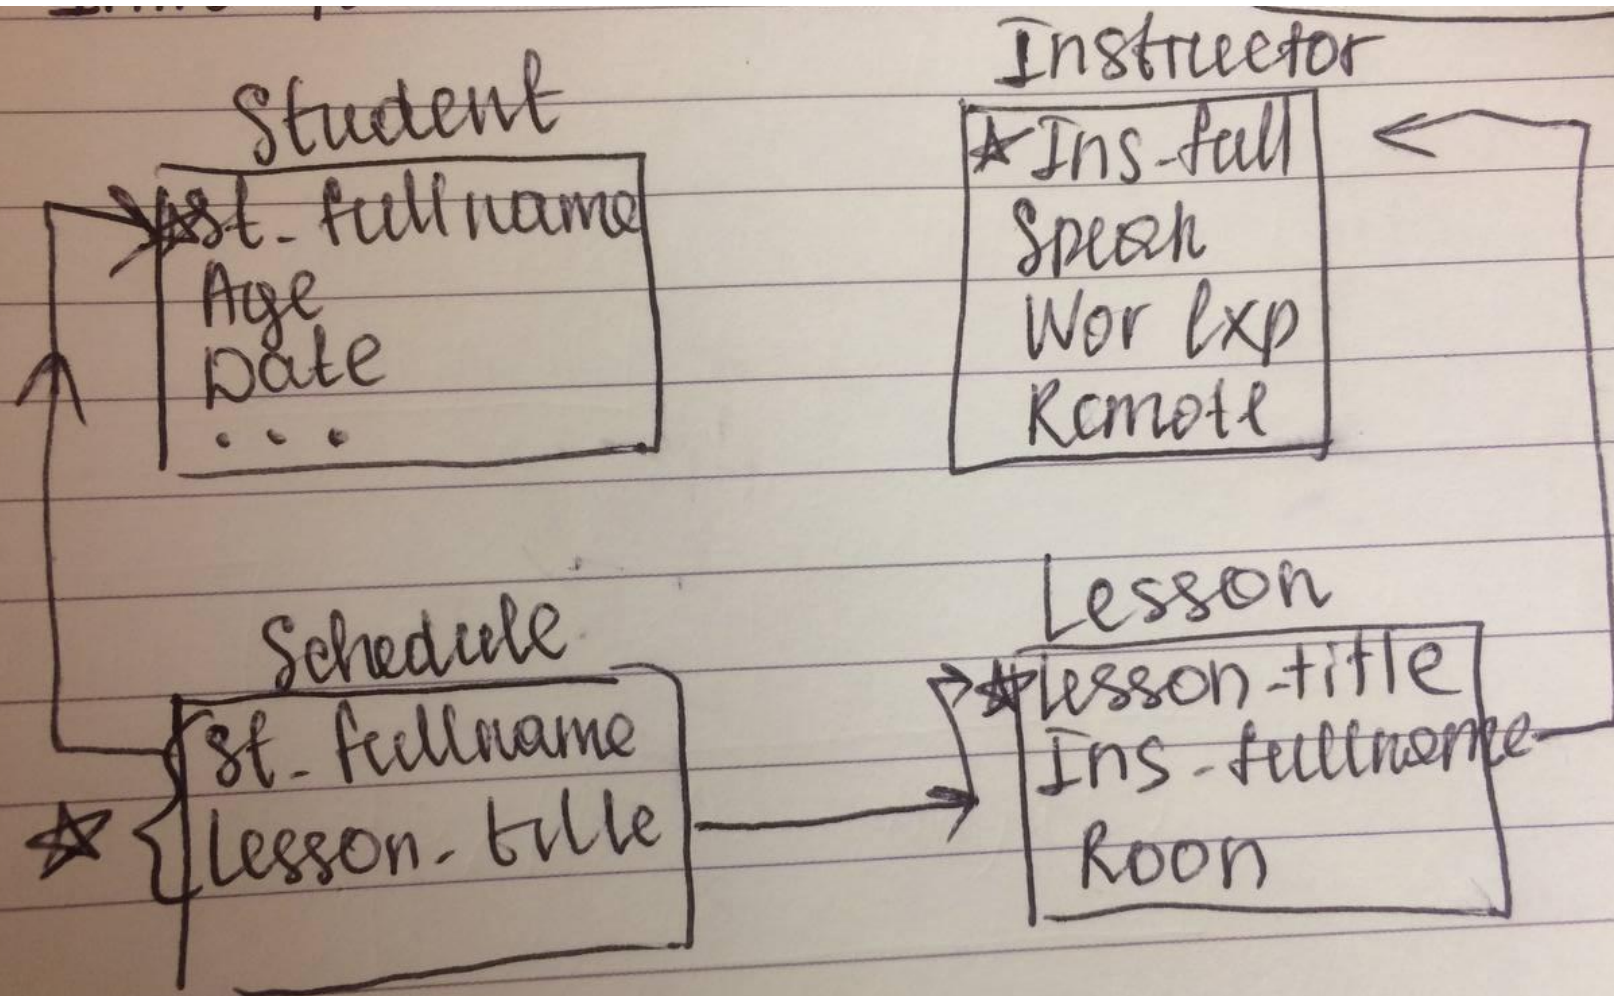 Student
st_fullname
Age
Date
...
Instructor
Ins-full
Speak
Wor Exp
Remote
Schedule
st_fullname
Lesson_title
Lesson
lesson-title
Ins-fullname
Roon